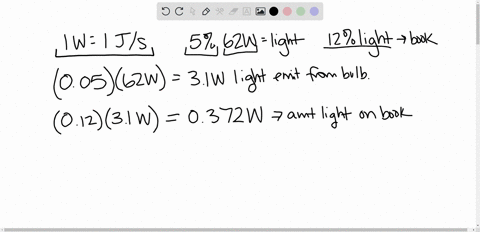 1W = 1 J/s 5%, 62W = light 12% light → book
(0.05)(62W) = 3.1W light emit from bulb.
(0.12)(3.1W) = 0.372W → amt light on book